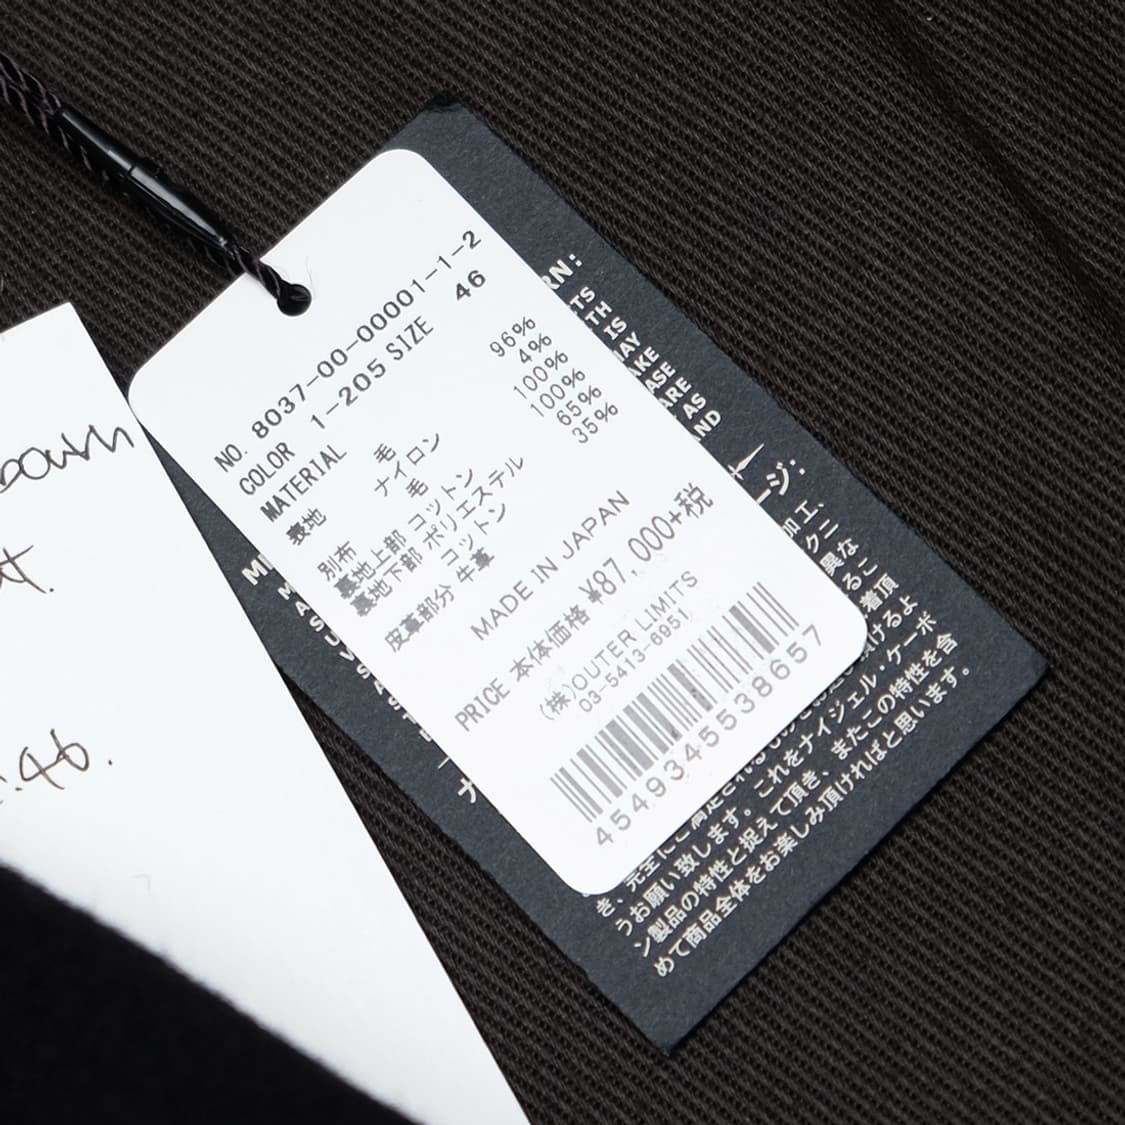 NO. 8037-00-00001-1-2
COLOR 1-205 SIZE 46
MATERIAL
表地 毛 96%
ナイロン 4%
別布 毛 100%
裏地上部 コットン 100%
裏地下部 ポリエステル 65%
コットン 35%
皮革部分 牛革
MADE IN JAPAN
PRICE 本体価格 ¥87,000+税
(株)OUTER LIMITS
03-5413-6951
4549345538657
RN:
TS
TH
IS
MAY
AKE
ASE
ARE
AS
ND
ージ:
加工、
クニ
異な
るこ
着頂
けるよ
うお願い致します。これをナイジェル・ケーボ
ン製品の特性と捉えて頂き、またこの特性を含
めて商品全体をお楽しみ頂ければと思います。
:46.